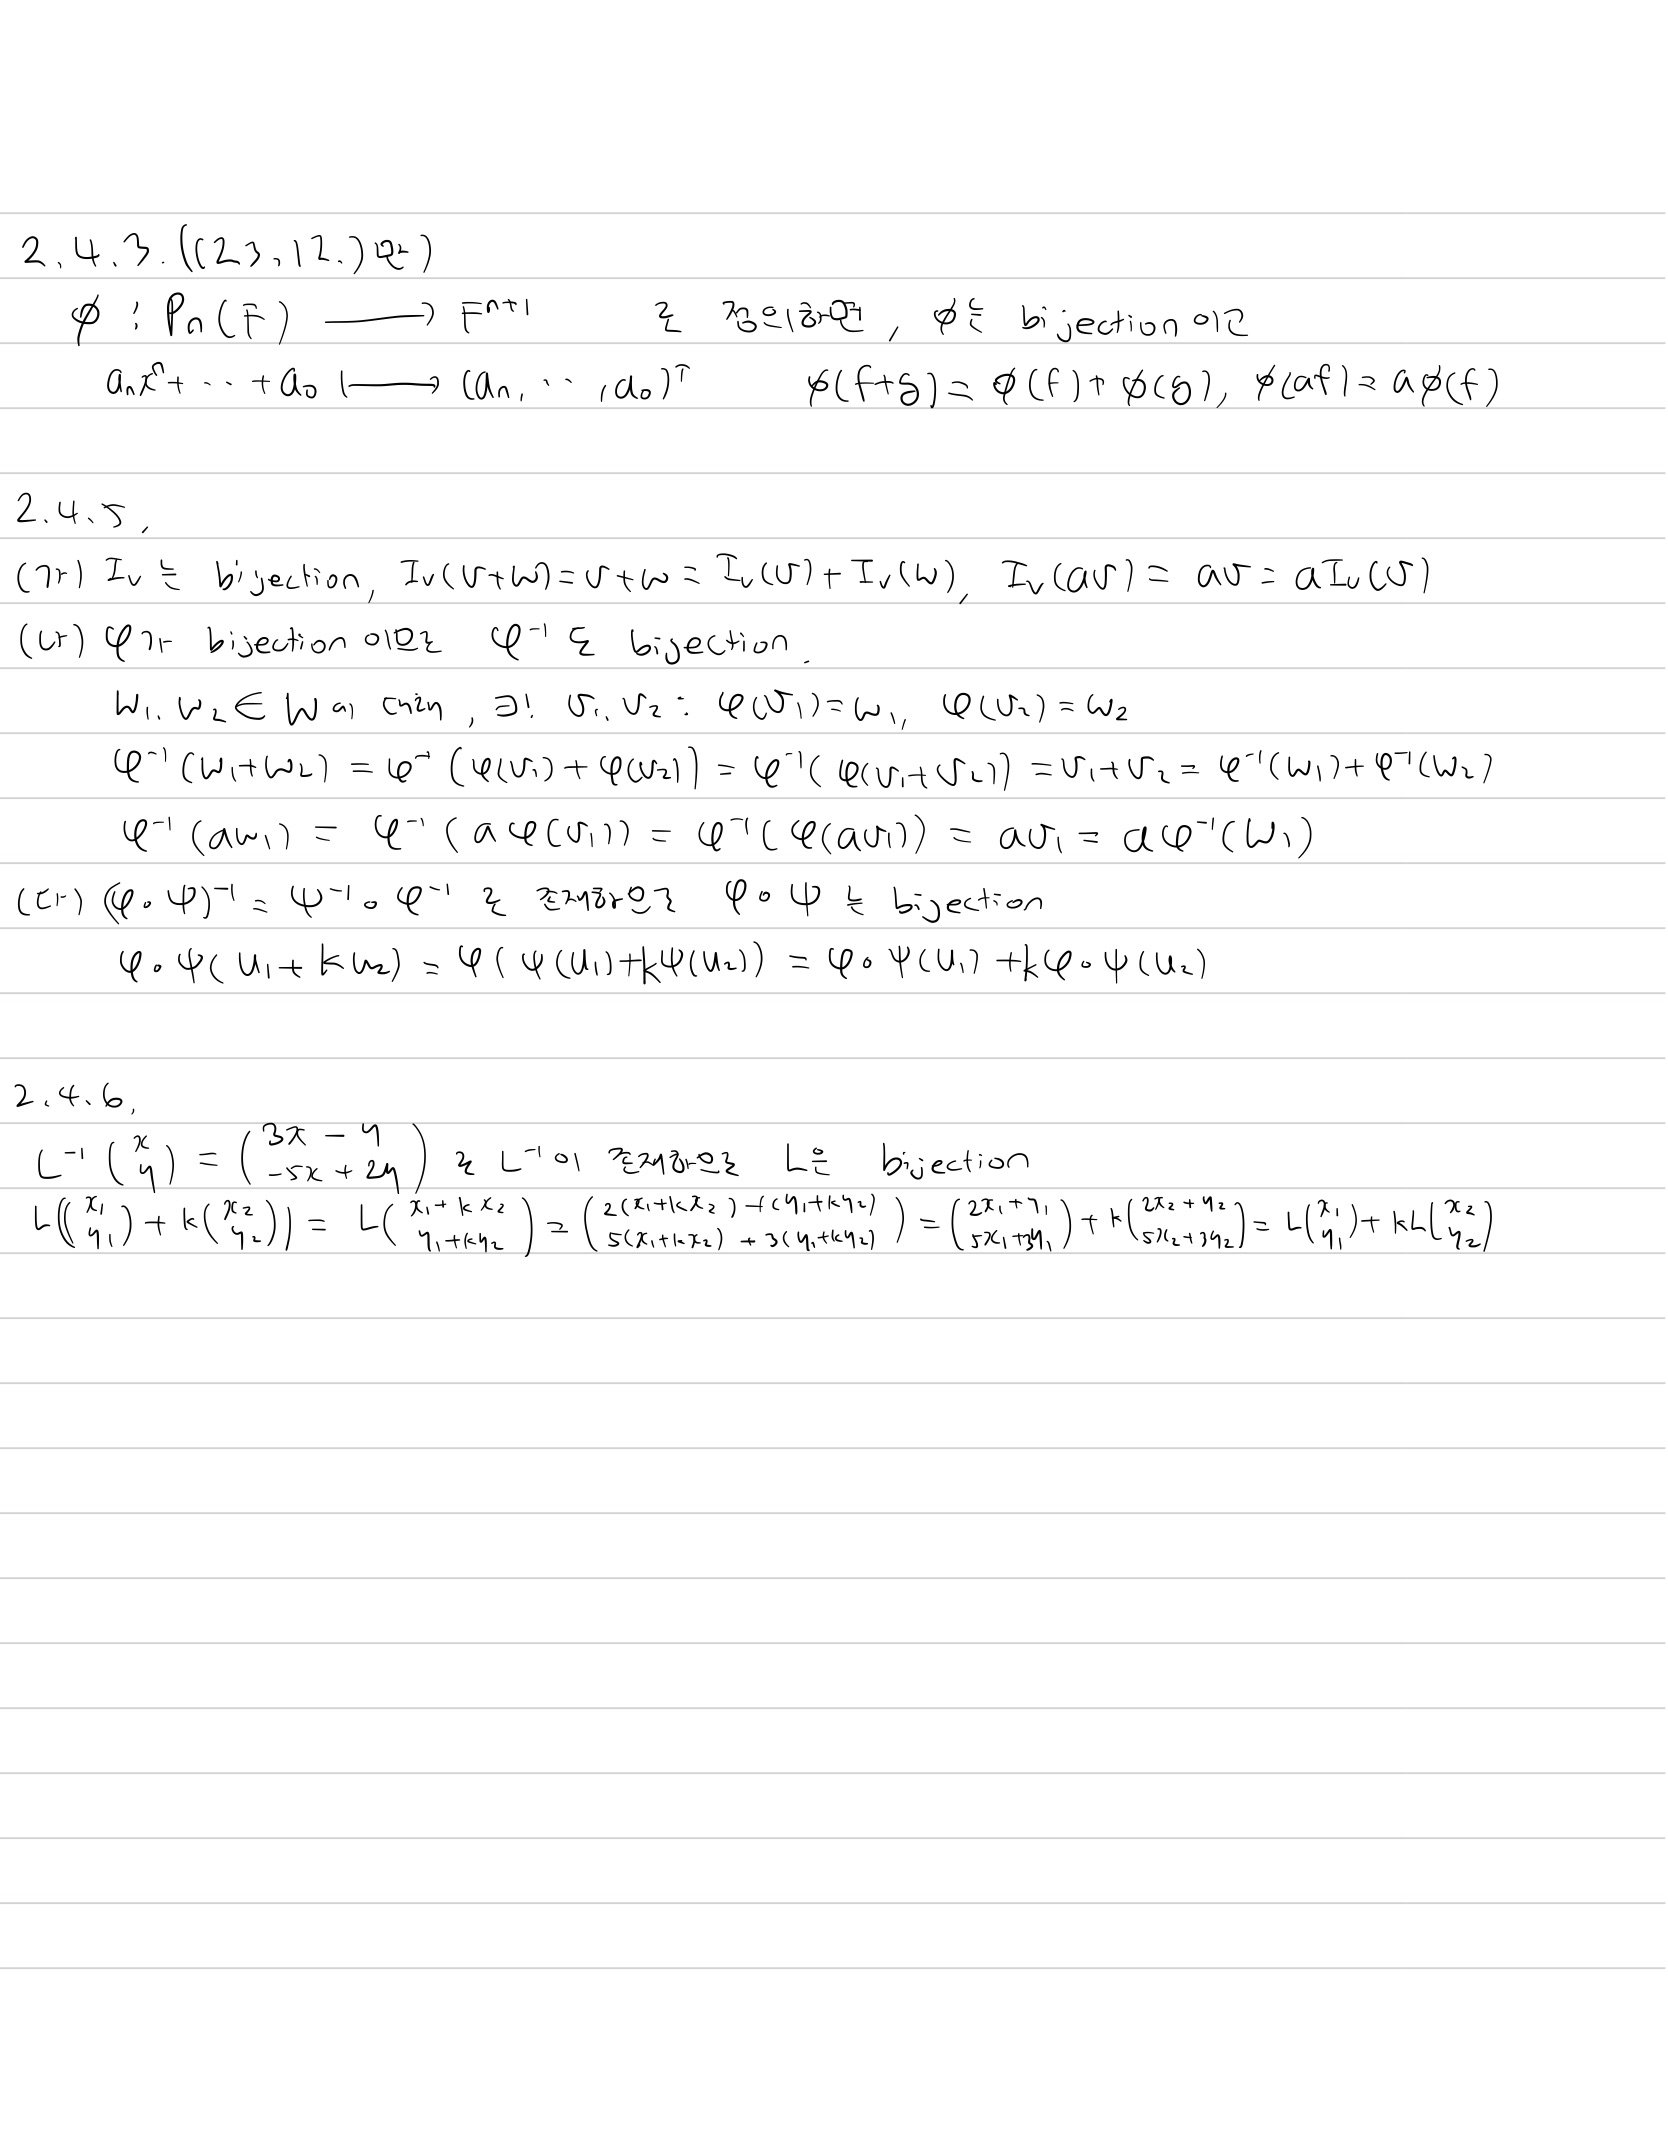 2.4.3. ((23.12.)만)
φ : Pn(F) ⟶ F^(n+1) 로 정의하면, φ는 bijection 이고
anx^n + ‥ + a0 ⟼ (an, ‥, a0)^T φ(f+g) = φ(f) + φ(g), φ(af) = aφ(f)
2.4.5.
(가) Iv 는 bijection, Iv(v+w) = v+w = Iv(v) + Iv(w), Iv(av) = av = aIv(v)
(나) φ가 bijection 이므로 φ⁻¹ 도 bijection.
w1, w2 ∈ W에 대해, ∃! v1, v2 : φ(v1) = w1, φ(v2) = w2
φ⁻¹(w1+w2) = φ⁻¹(φ(v1) + φ(v2)) = φ⁻¹(φ(v1+v2)) = v1+v2 = φ⁻¹(w1) + φ⁻¹(w2)
φ⁻¹(aw1) = φ⁻¹(aφ(v1)) = φ⁻¹(φ(av1)) = av1 = aφ⁻¹(w1)
(다) (φ∘ψ)⁻¹ = ψ⁻¹∘φ⁻¹ 로 존재하므로 φ∘ψ 는 bijection
φ∘ψ(u1+ku2) = φ(ψ(u1)+kψ(u2)) = φ∘ψ(u1) + kφ∘ψ(u2)
2.4.6.
L⁻¹(x y) = (3x − y −5x + 2y) 로 L⁻¹이 존재하므로 L은 bijection
L((x1 y1) + k(x2 y2)) = L(x1+kx2 y1+ky2) = (2(x1+kx2)+(y1+ky2) 5(x1+kx2)+3(y1+ky2)) = (2x1+y1 5x1+3y1) + k(2x2+y2 5x2+3y2) = L(x1 y1) + kL(x2 y2)